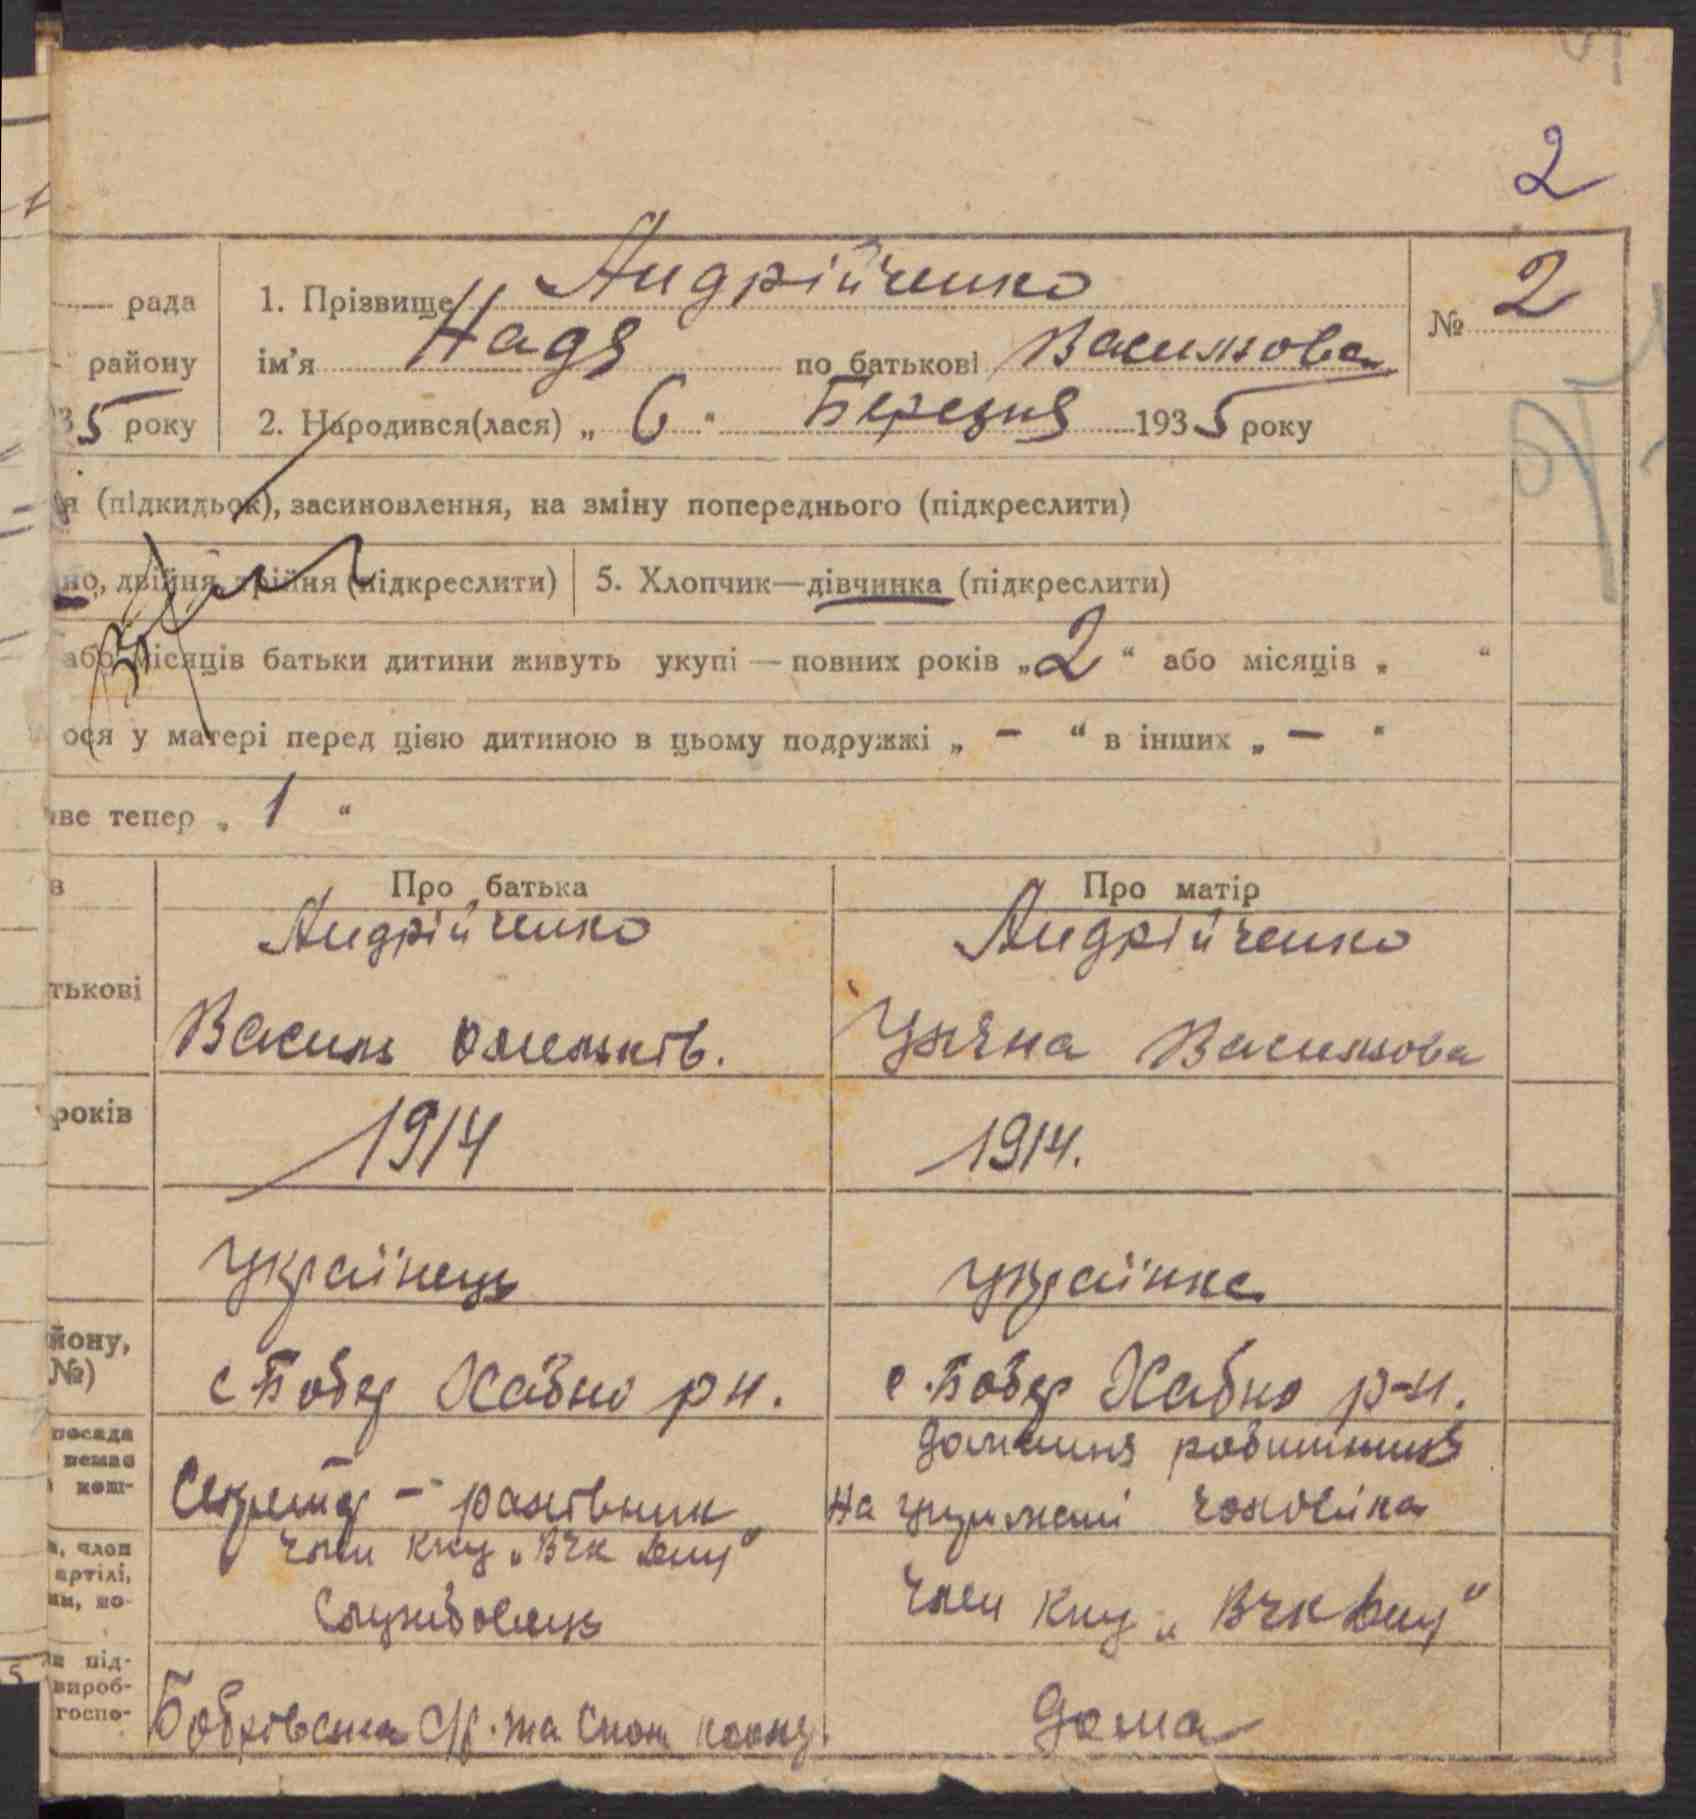 2
рада
1. Прізвище Андрійченко
№ 2
району
ім'я Надя по батькові Василькова
5 року
2. Народився(лася) „ 6 " Березня 1935 року
(підкидьок), засиновлення, на зміну попереднього (підкреслити)
но, двійня, трійня (підкреслити)
5. Хлопчик—дівчинка (підкреслити)
або місяців батьки дитини живуть укупі — повних років „ 2 “ або місяців „ “
ося у матері перед цією дитиною в цьому подружжі „ – “ в інших „ – “
ве тепер „ 1 “
в
Про батька
Про матір
Андрійченко
Андрійченко
тькові
Василь Омельків.
Василькова
років
1914
1914.
Українець
українка
йону,
№)
с Бобер Хабно рн.
с. Бобер Хабно р-н.
посада
немає
кош-
домашня робітниця
Секретар – рахівник
На утриманні чоловіка
, член
артілі,
член кну „ВЧК
Службовець
член кну „ВЧК
під-
вироб-
госпо-
Бобрівська с/р. та
Дома